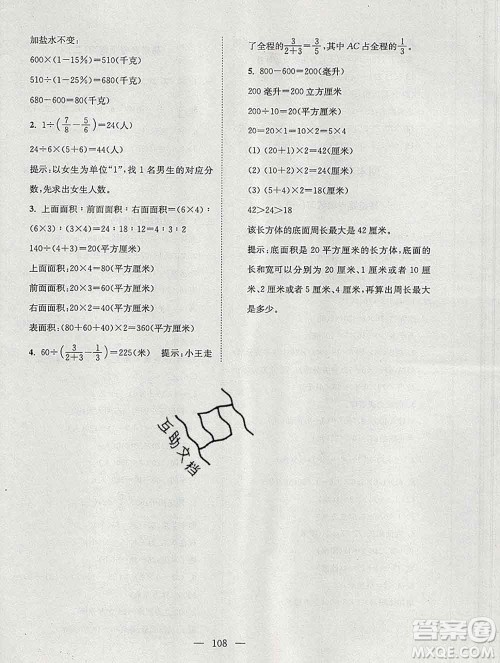 加盐水不变:
600×(1-15%)=510(千克)
510÷(1-25%)=680(千克)
680-600=80(千克)
2. 1÷(7/8-5/6)=24(人)
24×5/6=44(人)
提示:以女生为单位“1”,找1名男生的对应分
数,先求出女生人数。
3. 上面面积:前面面积:右面面积=(6×4):
(6×3):(6×3)=4:3:3
140÷(4+3)=20(平方厘米)
上面面积:20×4=80(平方厘米)
前面面积:20×3=60(平方厘米)
右面面积:20×3=60(平方厘米)
表面积:(80+60+40)×2=360(平方厘米)
4. 60÷(3/(2+3)-1/3)=225(米) 提示:小王走
了全程的3/(2+3)=3/5,其中AC占全程的1/3。
5. 800-600=200(毫升)
200毫升=200立方厘米
200÷10=20(平方厘米)
20=20×1=10×2=5×4
(1) (20+1)×2=42(厘米)
(2) (10+2)×2=24(厘米)
(3) (5+4)×2=18(厘米)
42>24>18
该长方体的底面周长最大是42厘米。
提示:底面积是20平方厘米的长方体,底面的
长和宽可以分别是20厘米和1厘米或者10厘
米、2厘米或者5厘米、4厘米,再算出周长最大
是多少。
互助文档
108
答案圈
MXQE.COM